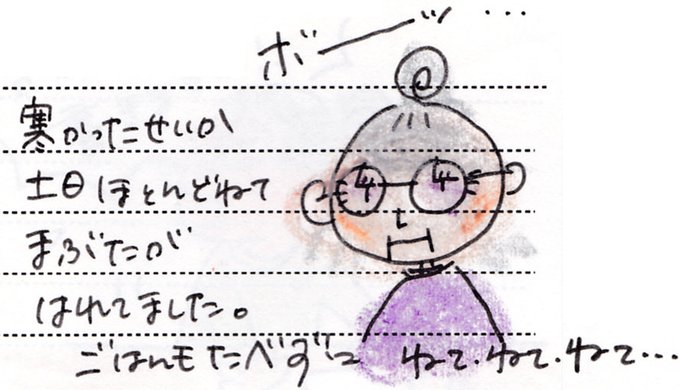 ボーーッ・・・
寒かったせいか
土日ほとんどねて
まぶたが
はれてました。
ごはんもたべずに ねて.ねて.ねて...